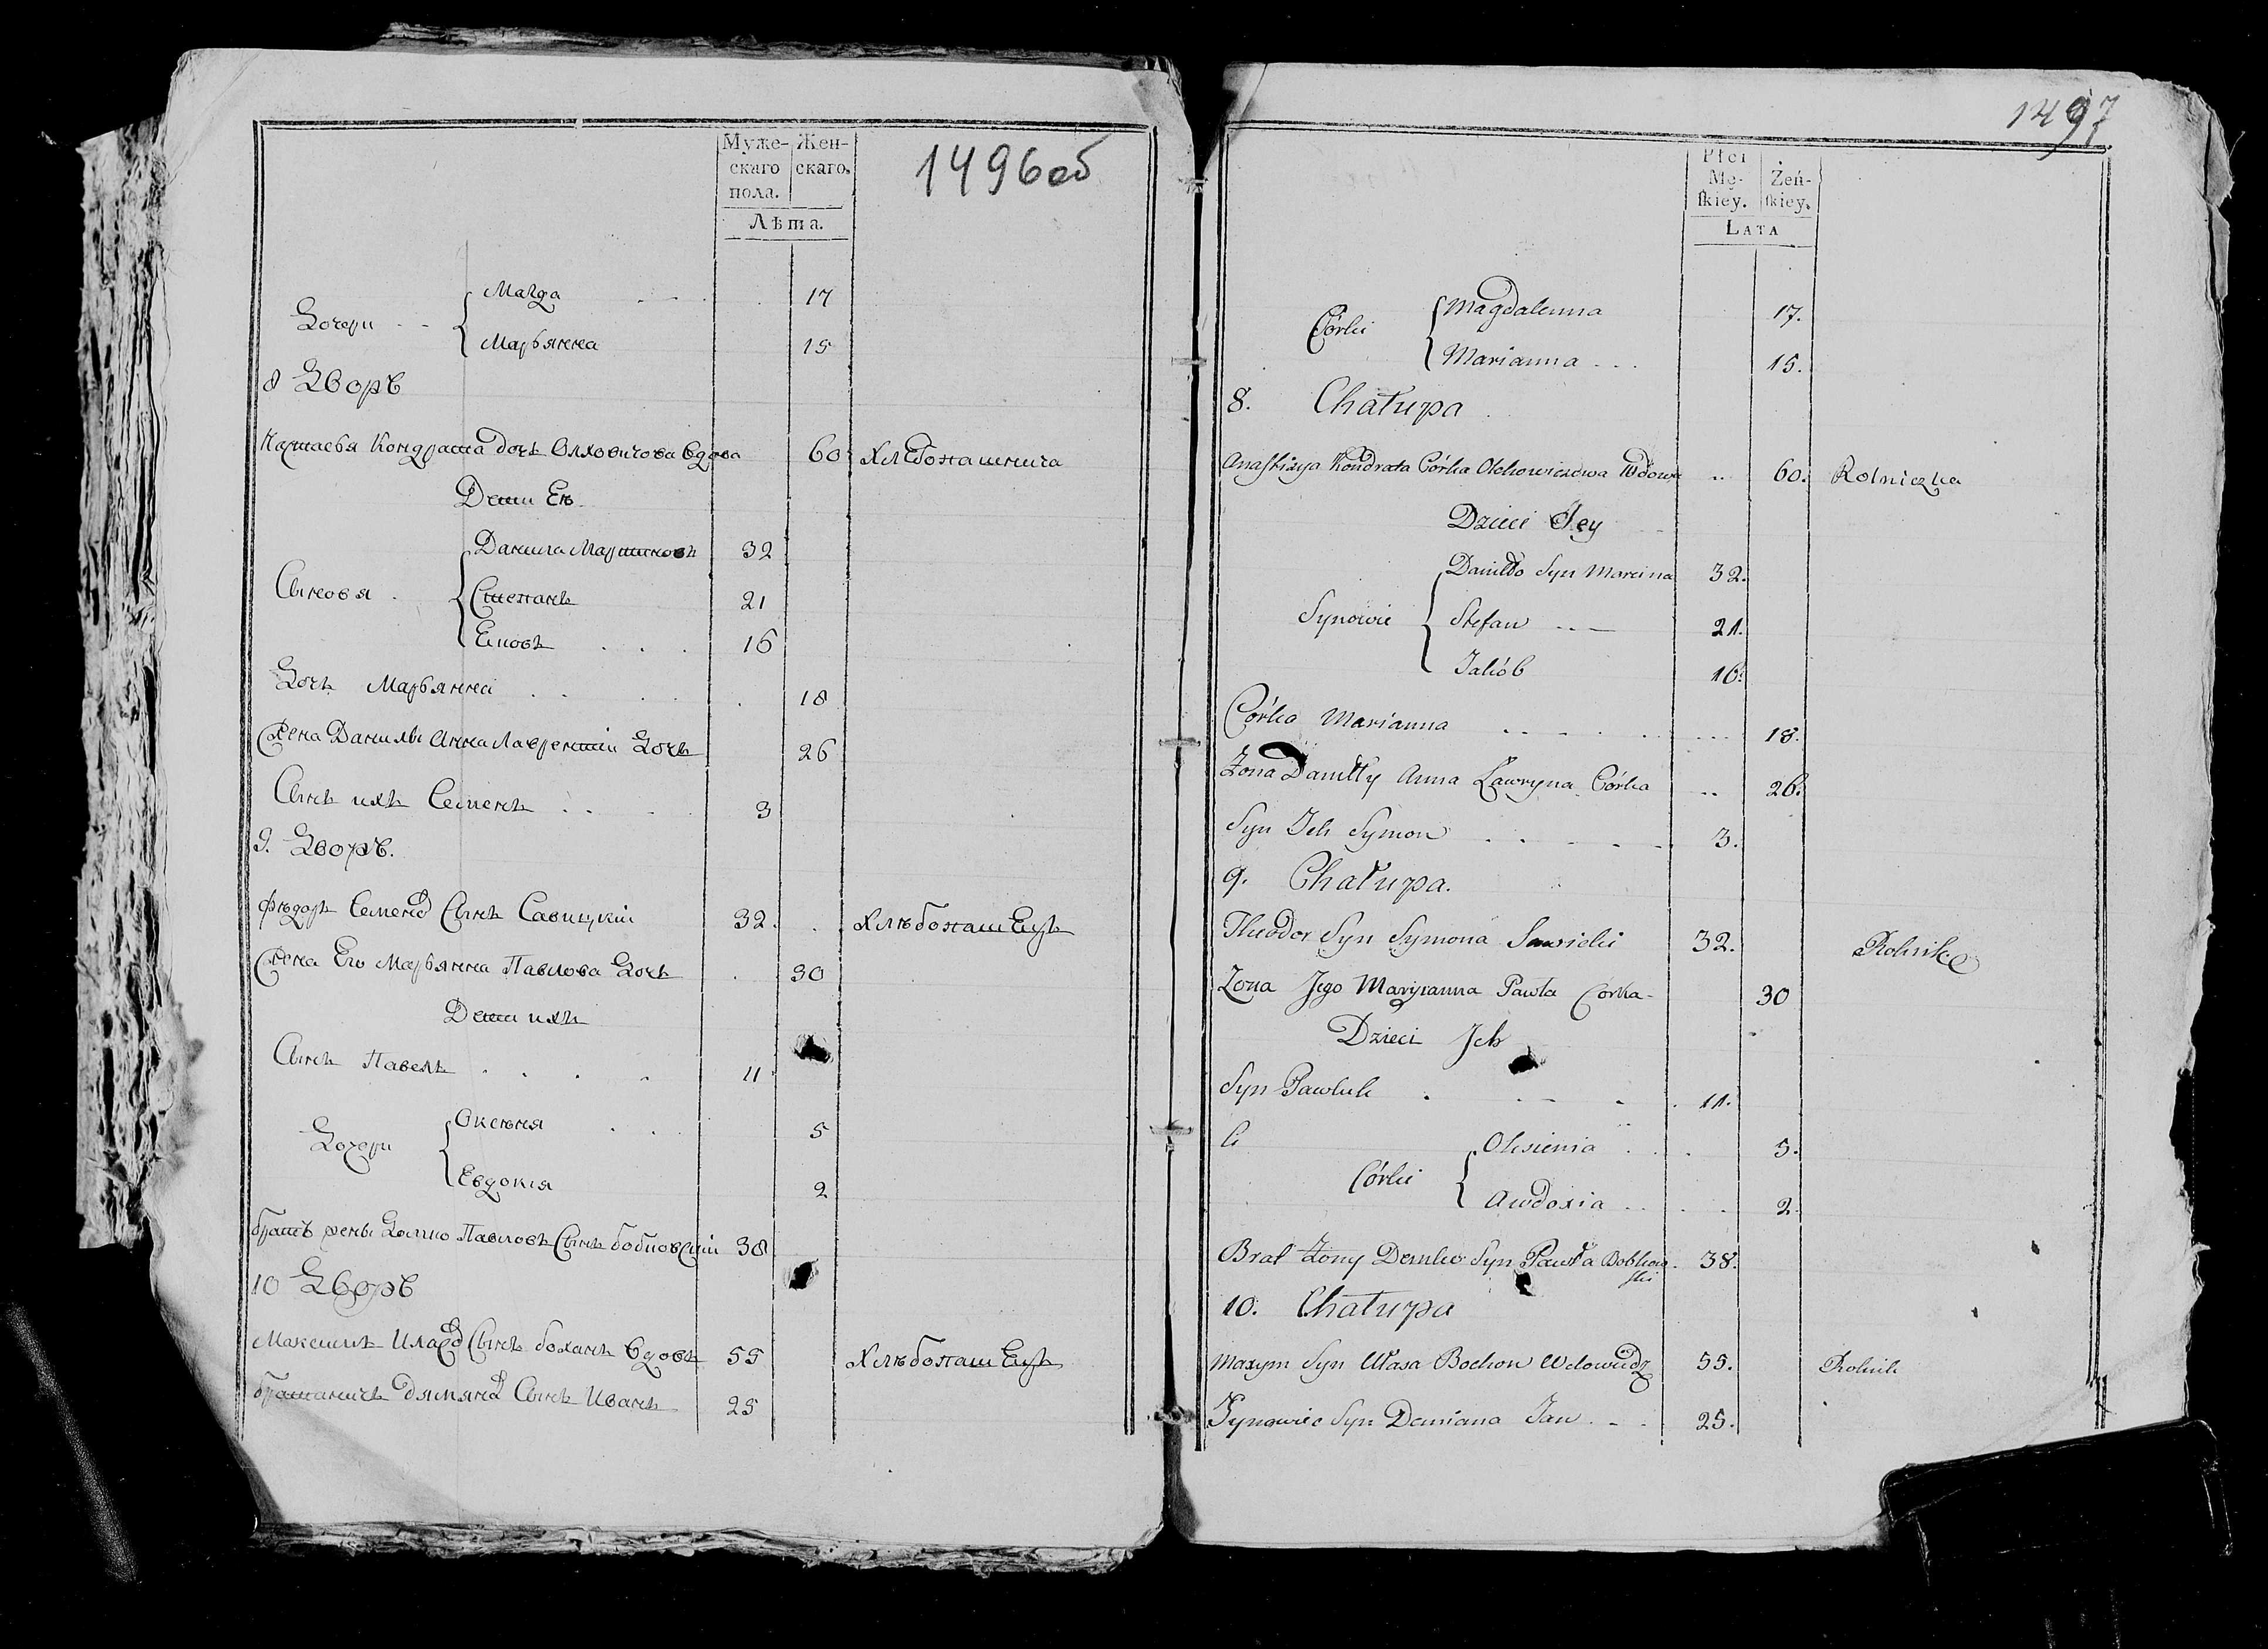 1496об
Муже-
скаго
пола.
Жен-
скаго.
Лѣта.
Дочери
Магда 17
Марьянна 15
8 Дворъ
Настасья Кондрата дочь Олховичова вдова 60 Хлебопашница
Дети Ея
Сыновья
Данила Мартиновъ 32
Степанъ 21
Яковъ 16
Дочь Марьянна 18
Жена Данилы Анна Лаврентiи Дочь 26
Сынъ ихъ Семенъ 3
9. Дворъ.
Фѣдоръ Семена Сынъ Савицкiи 32. Хлѣбопашецъ
Жена Его Марьянна Павлова Дочь 30
Дети ихъ
Сынъ Павелъ 11
Дочери
Оксѣня 5
Евдокiя 2
братъ жены Демко Павловъ Сынъ бобковскiи 38
10 Дворъ
Максимъ Власа Сынъ боханъ вдовъ 55 Хлѣбопашецъ
братаничъ Дямяна Сынъ Иванъ 25
1497
Płci
Mę-
ſkiey.
Żeń-
ſkiey.
LATA
Córki
Magdalenna 17.
Marianna 15.
8. Chałupa
Anastazya Kondrata Córka Olchowiczowa Wdowa 60. Rolniczka
Dzieci Jey
Synowie
Daniłło Syn Marcina 32.
Stefan 21.
Jakób 16.
Córka Marianna 18.
Żona Daniłły Anna Ławryna Córka 26.
Syn Ich Symon 3.
9. Chałupa.
Theodor Syn Symona Sawicki 32. Rolnik
Zona Jego Maryianna Pawła Corka 30
Dzieci Ich
Syn Pawluk 11.
C
Córki
Oksienia 5.
Awdoxia 2.
Brat Żony Demko Syn Pawła Bobkow
ski 38.
10. Chałupa
Maxym Syn Ułasa Bochon Wdowiec 55. Rolnik
Synowiec Syn Demiana Jan 25.